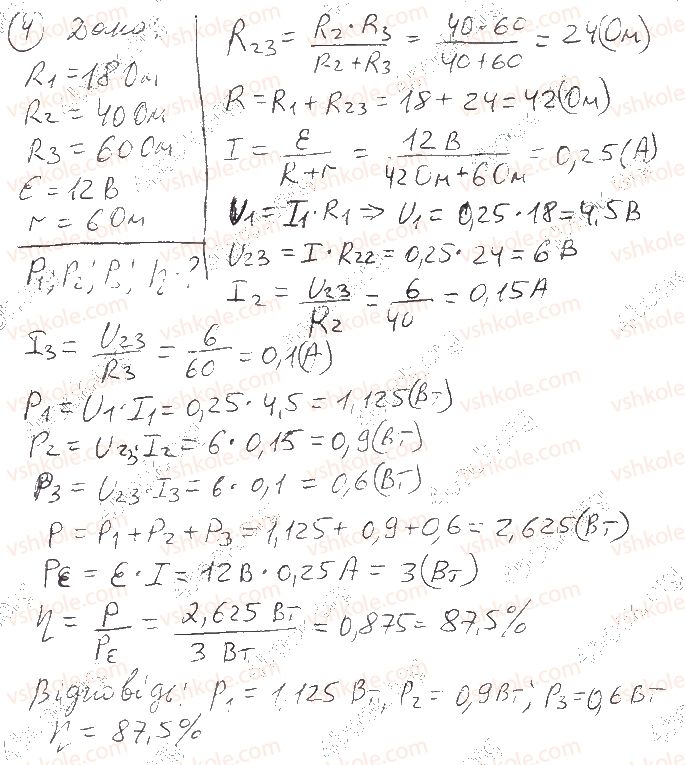 (4) Дано:
R1 = 18 Ом
R2 = 40 Ом
R3 = 60 Ом
ε = 12 В
r = 6 Ом
P1; P2; P3; η - ?
R23 = R2 · R3 / R2 + R3 = 40 · 60 / 40 + 60 = 24 (Ом)
R = R1 + R23 = 18 + 24 = 42 (Ом)
I = ε / R + r = 12 В / 42 Ом + 6 Ом = 0,25 (А)
U1 = I1 · R1 ⇒ U1 = 0,25 · 18 = 4,5 В
U23 = I · R22 = 0,25 · 24 = 6 В
I2 = U23 / R2 = 6 / 40 = 0,15 А
I3 = U23 / R3 = 6 / 60 = 0,1 (А)
P1 = U1 · I1 = 0,25 · 4,5 = 1,125 (Вт)
P2 = U23 · I2 = 6 · 0,15 = 0,9 (Вт)
P3 = U23 · I3 = 6 · 0,1 = 0,6 (Вт)
P = P1 + P2 + P3 = 1,125 + 0,9 + 0,6 = 2,625 (Вт)
Pε = ε · I = 12 В · 0,25 А = 3 (Вт)
η = P / Pε = 2,625 Вт / 3 Вт = 0,875 = 87,5%
Відповідь: P1 = 1,125 Вт, P2 = 0,9 Вт; P3 = 0,6 Вт
η = 87,5%
vshkole.com